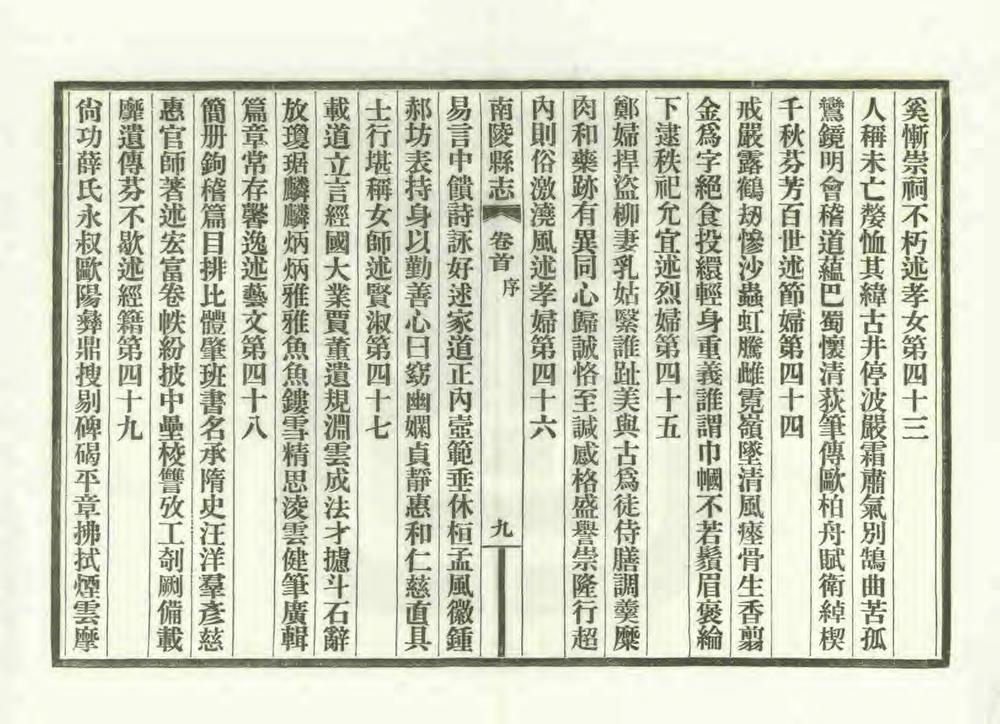 奚慚崇祠不朽述孝女第四十三
人稱未亡嫠恤其緯古井停波嚴霜肅氣别鵠曲苦孤
鸞鏡明會稽道蘊巴蜀懷清荻筆傳歐柏舟賦衛綽楔
千秋芬芳百世述節婦第四十四
戒嚴露鶴刼慘沙蟲虹騰雌霓嶺墜清風瘞骨生香翦
金爲字絕食投繯輕身重義誰謂巾幗不若鬚眉褒綸
下逮秩祀允宜述烈婦第四十五
鄭婦捍盜柳妻乳姑緊誰趾美與古爲徒侍膳調羹糜
肉和藥跡有異同心歸誠恪至誠感格盛譽崇隆行超
內則俗激澆風述孝婦第四十六
南陵縣志
卷首
序
九
易言中饋詩詠好逑家道正內壼範垂休桓孟風徽鍾
郝坊表持身以勤善心曰窈幽嫻貞靜惠和仁慈直具
士行堪稱女師述賢淑第四十七
載道立言經國大業賈董遺規淵雲成法才攄斗石辭
放瓊琚麟麟炳炳雅雅魚魚鏤雪精思淩雲健筆廣輯
篇章常存馨逸述藝文第四十八
簡册鉤稽篇目排比體肇班書名承隋史汪洋羣彥慈
惠官師著述宏富卷帙紛披中壘校讐攷工剞劂備載
靡遺傳芬不歇述經籍第四十九
尙功薛氏永叔歐陽彝鼎搜剔碑碣平章拂拭煙雲摩